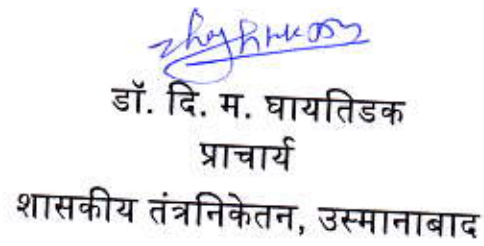 डॉ. दि. म. घायतिडक
प्राचार्य
शासकीय तंत्रनिकेतन, उस्मानाबाद